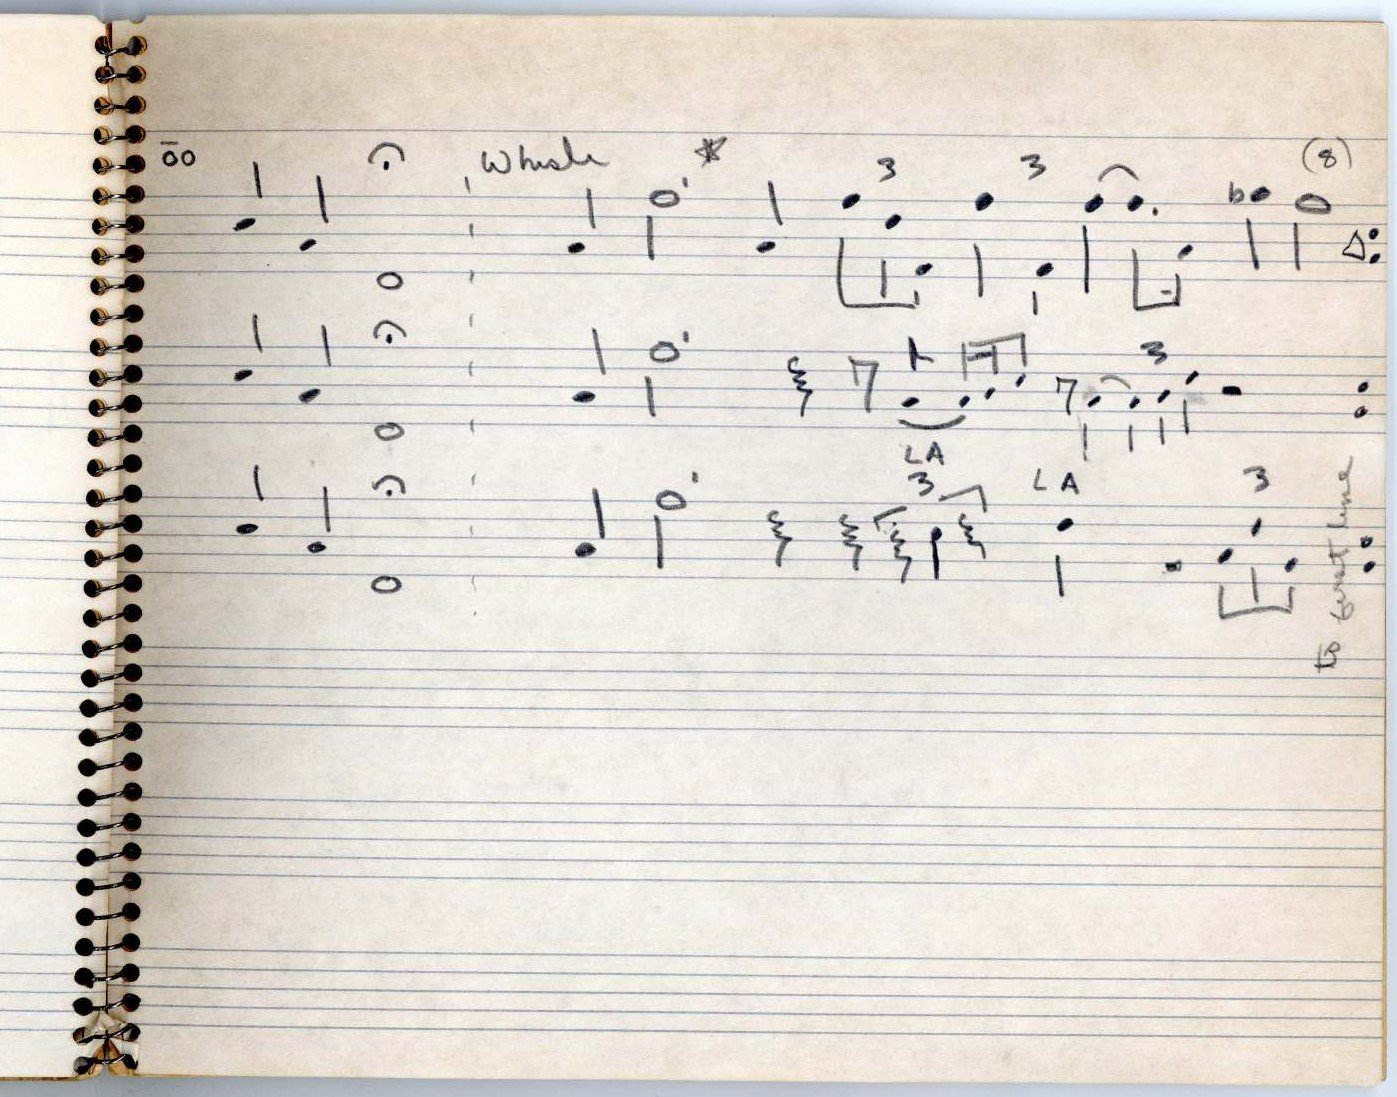 ōo Whistle 3 3 (8)
3
LA
3 LA 3
to first line